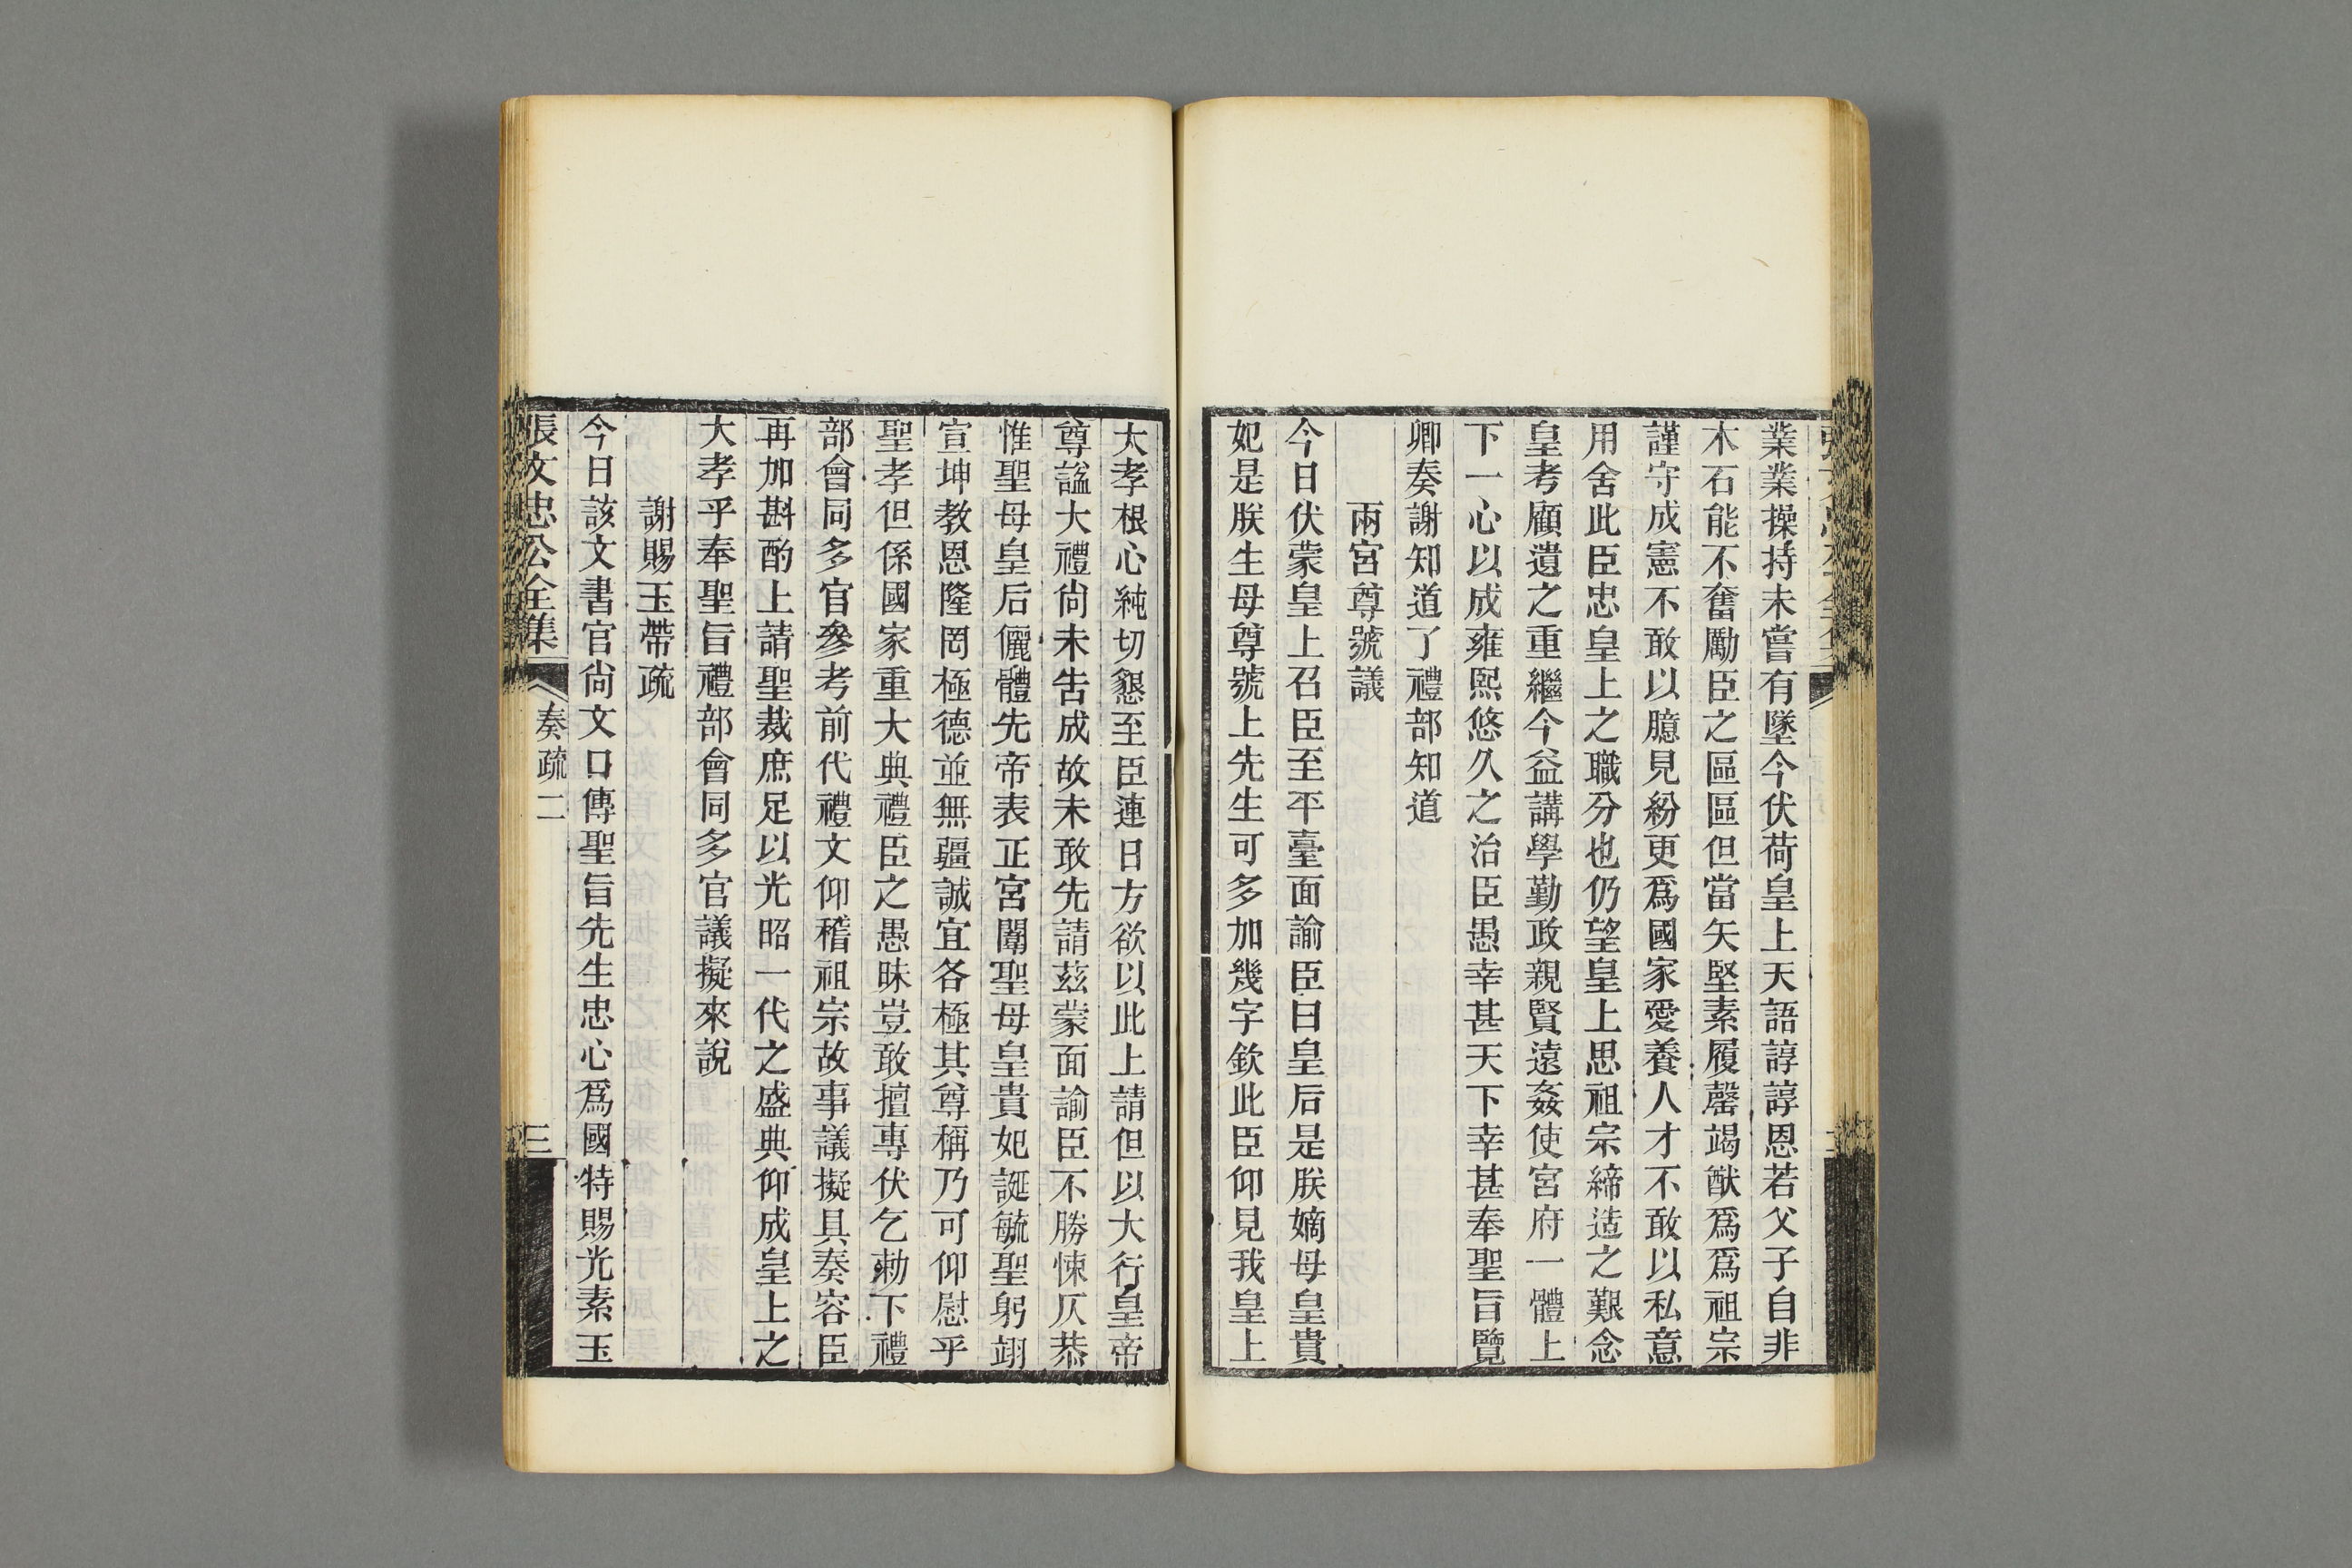 業業操持未嘗有墜今伏荷皇上天語諄諄恩若父子自非
木石能不奮勵臣之區區但當矢堅素履罄竭猷爲爲祖宗
謹守成憲不敢以臆見紛更爲國家愛養人才不敢以私意
用舍此臣忠皇上之職分也仍望皇上思祖宗締造之艱念
皇考顧遺之重繼今益講學勤政親賢遠姦使宮府一體上
下一心以成雍熙悠久之治臣愚幸甚天下幸甚奉聖旨覽
卿奏謝知道了禮部知道
兩宮尊號議
今日伏蒙皇上召臣至平臺面諭臣曰皇后是朕嫡母皇貴
妃是朕生母尊號上先生可多加幾字欽此臣仰見我皇上
大孝根心純切懇至臣連日方欲以此上請但以大行皇帝
尊諡大禮尙未告成故未敢先請茲蒙面諭臣不勝悚仄恭
惟聖母皇后儷體先帝表正宮闈聖母皇貴妃誕毓聖躬翊
宣坤教恩隆罔極德並無疆誠宜各極其尊稱乃可仰慰乎
聖孝但係國家重大典禮臣之愚昧豈敢擅專伏乞勅下禮
部會同多官參考前代禮文仰稽祖宗故事議擬具奏容臣
再加斟酌上請聖裁庶足以光昭一代之盛典仰成皇上之
大孝乎奉聖旨禮部會同多官議擬來說
謝賜玉帶疏
今日該文書官尙文口傳聖旨先生忠心爲國特賜光素玉
張文忠公全集
奏疏二
三